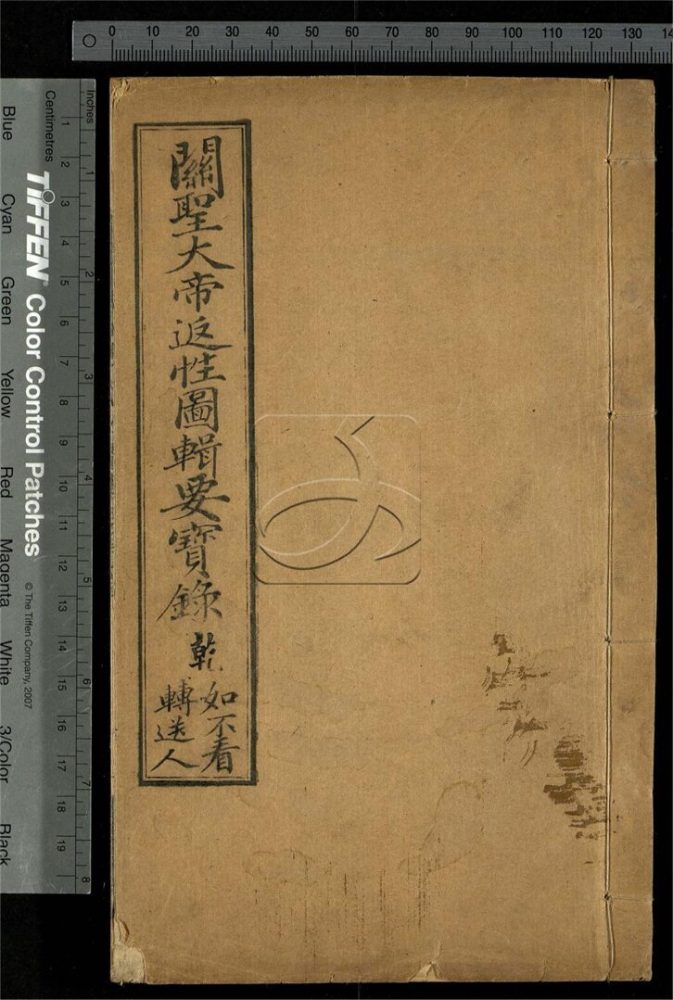 0 10 20 30 40 50 60 70 80 90 100 110 120 130 14
關聖大帝返性圖輯要寶錄 乾
如不看
轉送人
Inches
1 2 3 4 5 6 7 8
Centimetres
1 2 3 4 5 6 7 8 9 10 11 12 13 14 15 16 17 18 19
TIFFEN Color Control Patches
© The Tiffen Company, 2007
Blue Cyan Green Yellow Red Magenta White 3/Color Black